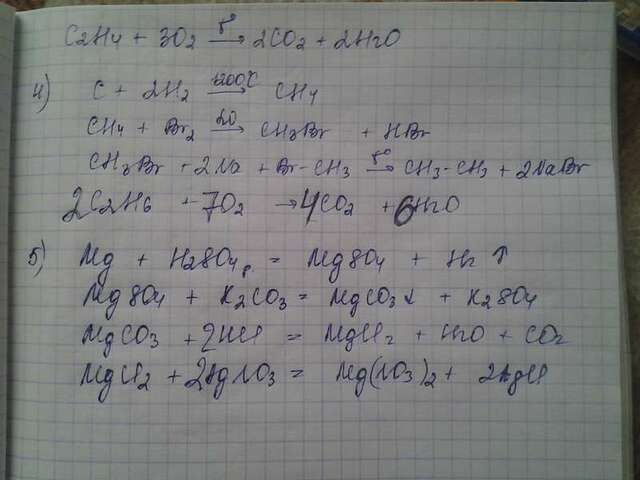 C2H4 + 3O2 t°→ 2CO2 + 2H2O
4) C + 2H2 1200°C→ CH4
CH4 + Br2 → CH3Br + HBr
CH3Br + 2Na + Br-CH3 t°→ CH3-CH3 + 2NaBr
2C2H6 + 7O2 → 4CO2 + 6H2O
5) Mg + H2SO4р = MgSO4 + H2 ↑
MgSO4 + K2CO3 = MgCO3↓ + K2SO4
MgCO3 + 2HCl = MgCl2 + H2O + CO2
MgCl2 + 2AgNO3 = Mg(NO3)2 + 2AgCl